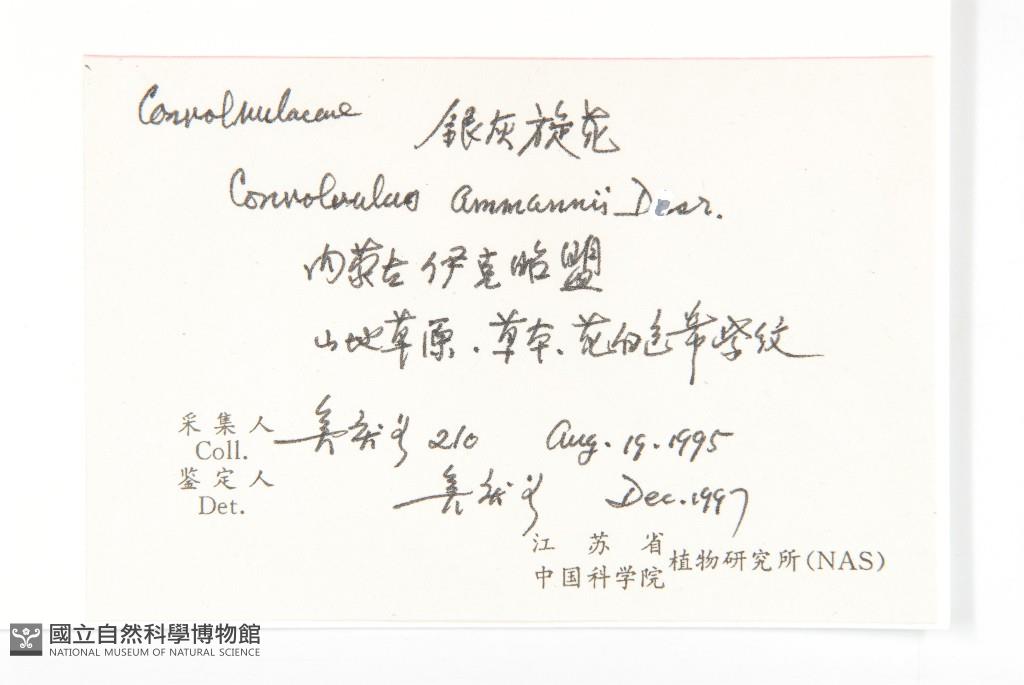 Convolvulaceae
銀灰旋花
Convolvulus ammannii Desr.
内蒙古伊克昭盟
山地草原、草本、花白色带紫纹
采集人
Coll. 210 Aug. 19. 1995
鉴定人
Det. Dec. 1997
江苏省
中国科学院
植物研究所(NAS)
國立自然科學博物館
NATIONAL MUSEUM OF NATURAL SCIENCE